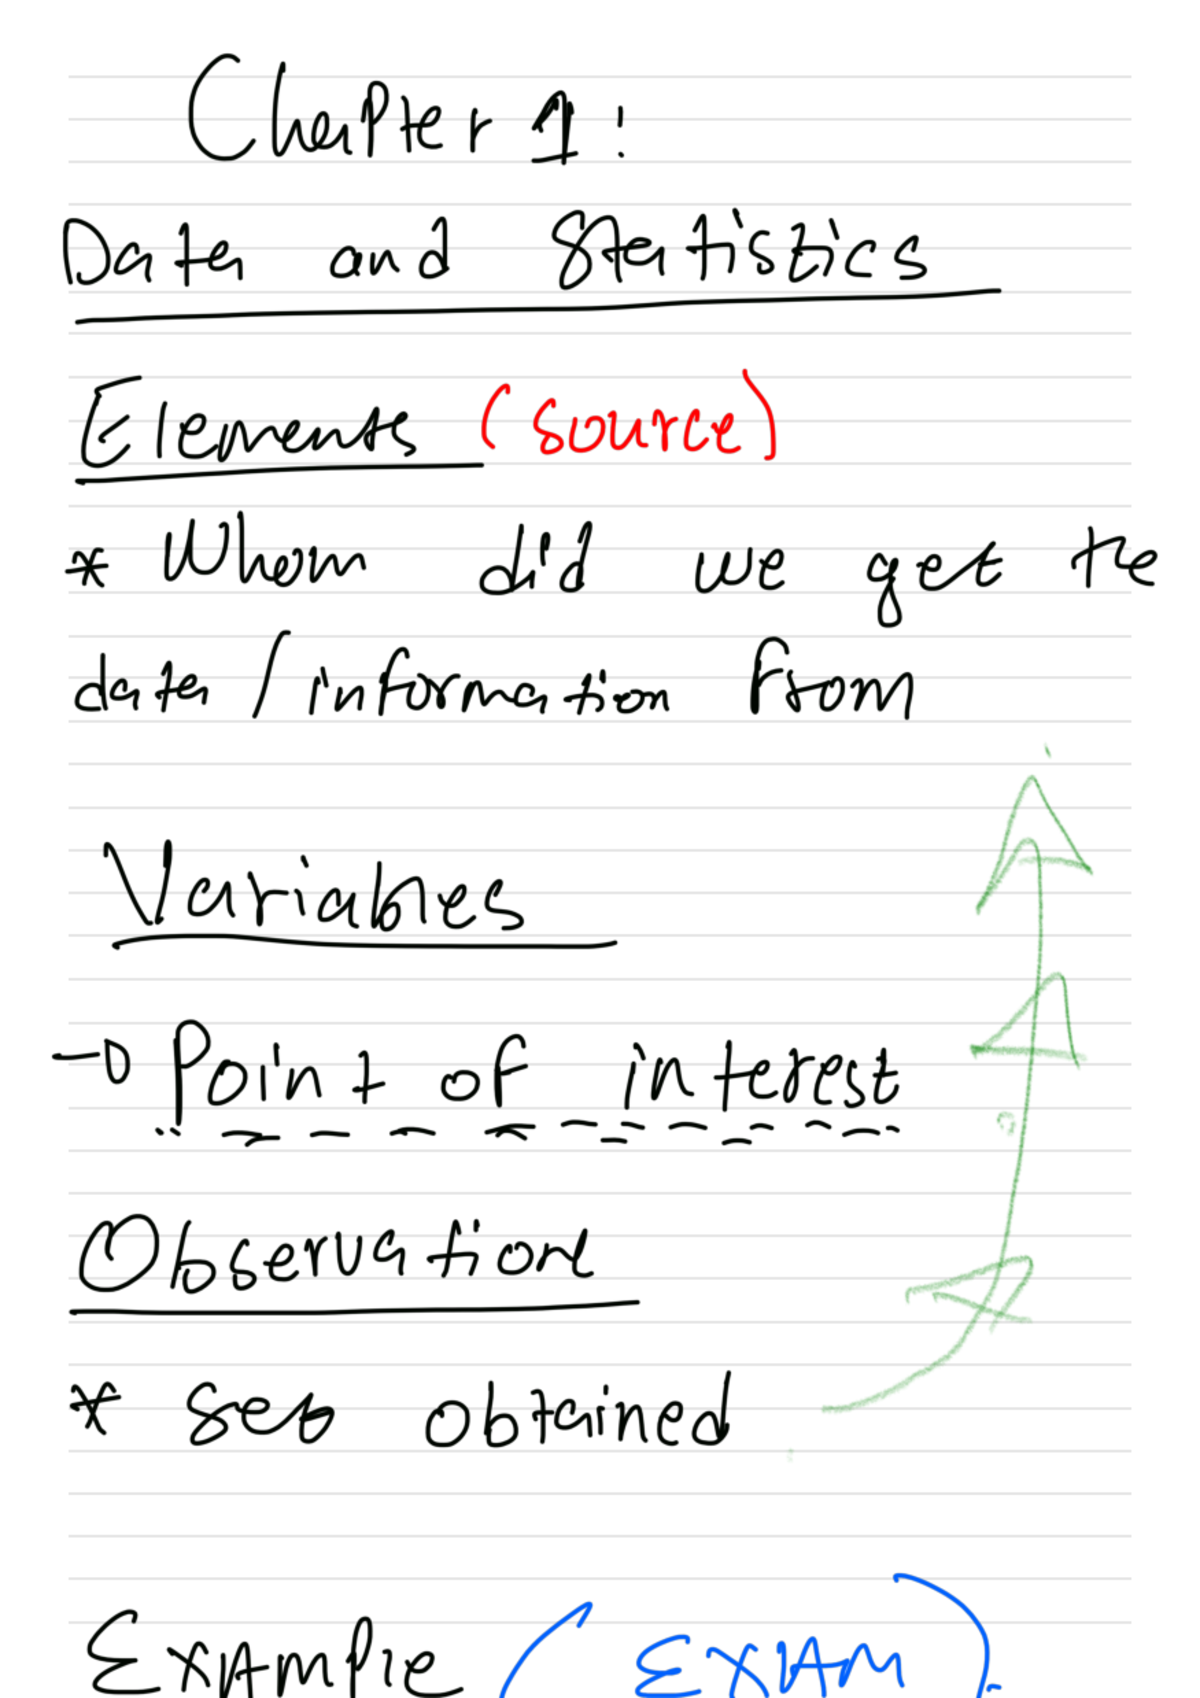 Chapter 1:
Data and Statistics
Elements (source)
* Whom did we get the
data / information from
Variables
→ Point of interest
Observation
* set obtained
Example (EXAM).